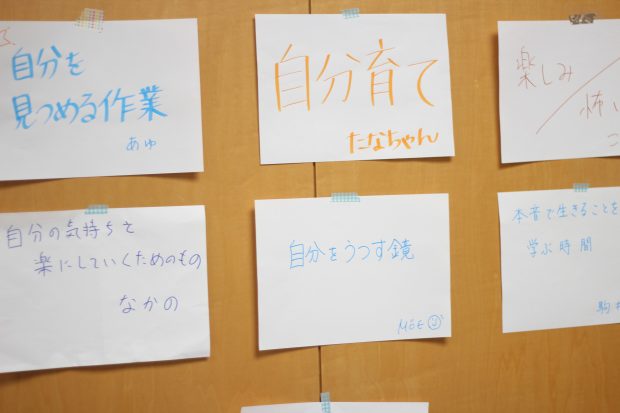 自分を
見つめる作業
あゆ
自分育て
たなちゃん
楽しみ
怖い
こ
自分の気持ちを
楽にしていくためのもの
なかの
自分をうつす鏡
MOE
本音で生きることを
学ぶ時間
駒